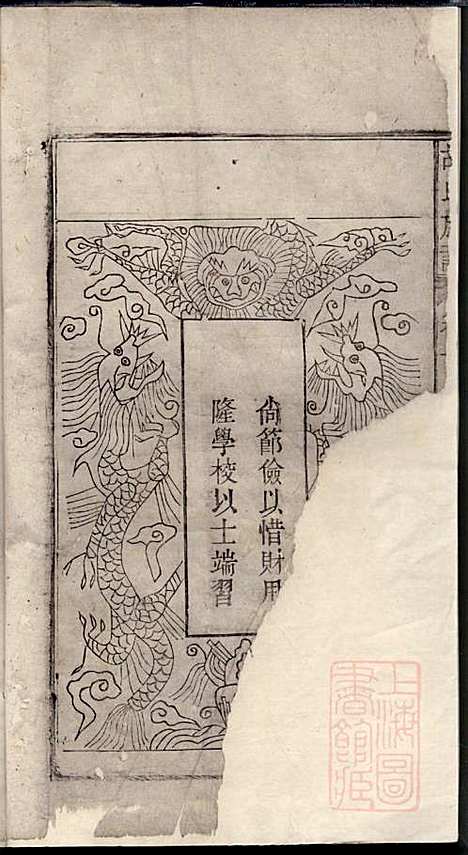 尙節儉以惜財用
隆學校以士端習
上海圖
書館藏